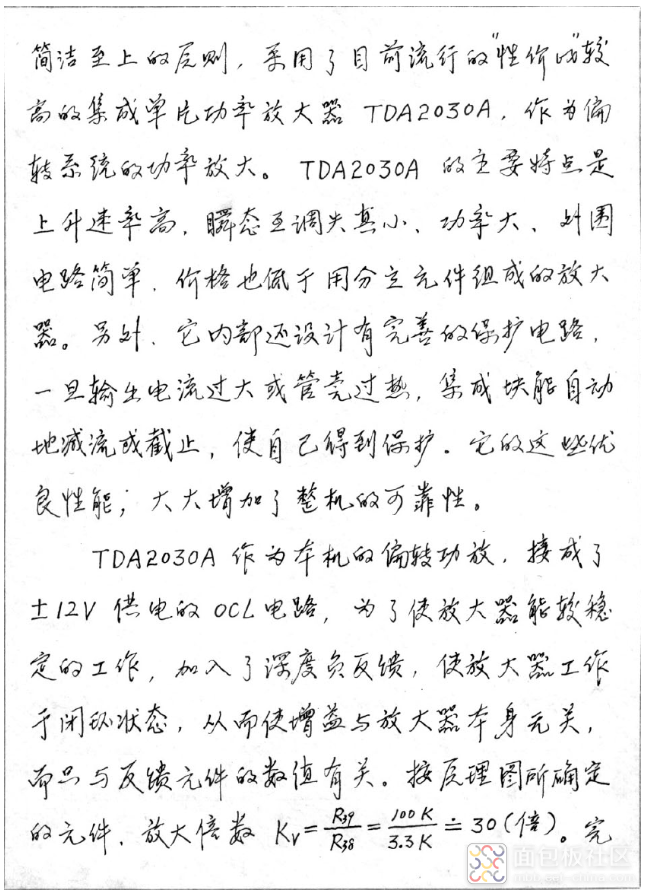 简洁至上的原则，采用了目前流行的"性价比"较
高的集成单片功率放大器 TDA2030A，作为偏
转系统的功率放大。TDA2030A 的主要特点是
上升速率高，瞬态互调失真小、功率大、外围
电路简单，价格也低于用分立元件组成的放大
器。另外，它内部还设计有完善的保护电路，
一旦输出电流过大或管壳过热，集成块能自动
地减流或截止，使自己得到保护。它的这些优
良性能；大大增加了整机的可靠性。
TDA2030A 作为本机的偏转功放，接成了
±12V 供电的 OCL 电路，为了使放大器能较稳
定的工作，加入了深度负反馈，使放大器工作
于闭环状态，从而使增益与放大器本身无关，
而只与反馈元件的数值有关。按原理图所确定
的元件，放大倍数 Kv = R39/R38 = 100K/3.3K ≐ 30（倍）。完
面包板社区
mbb.eet-china.com